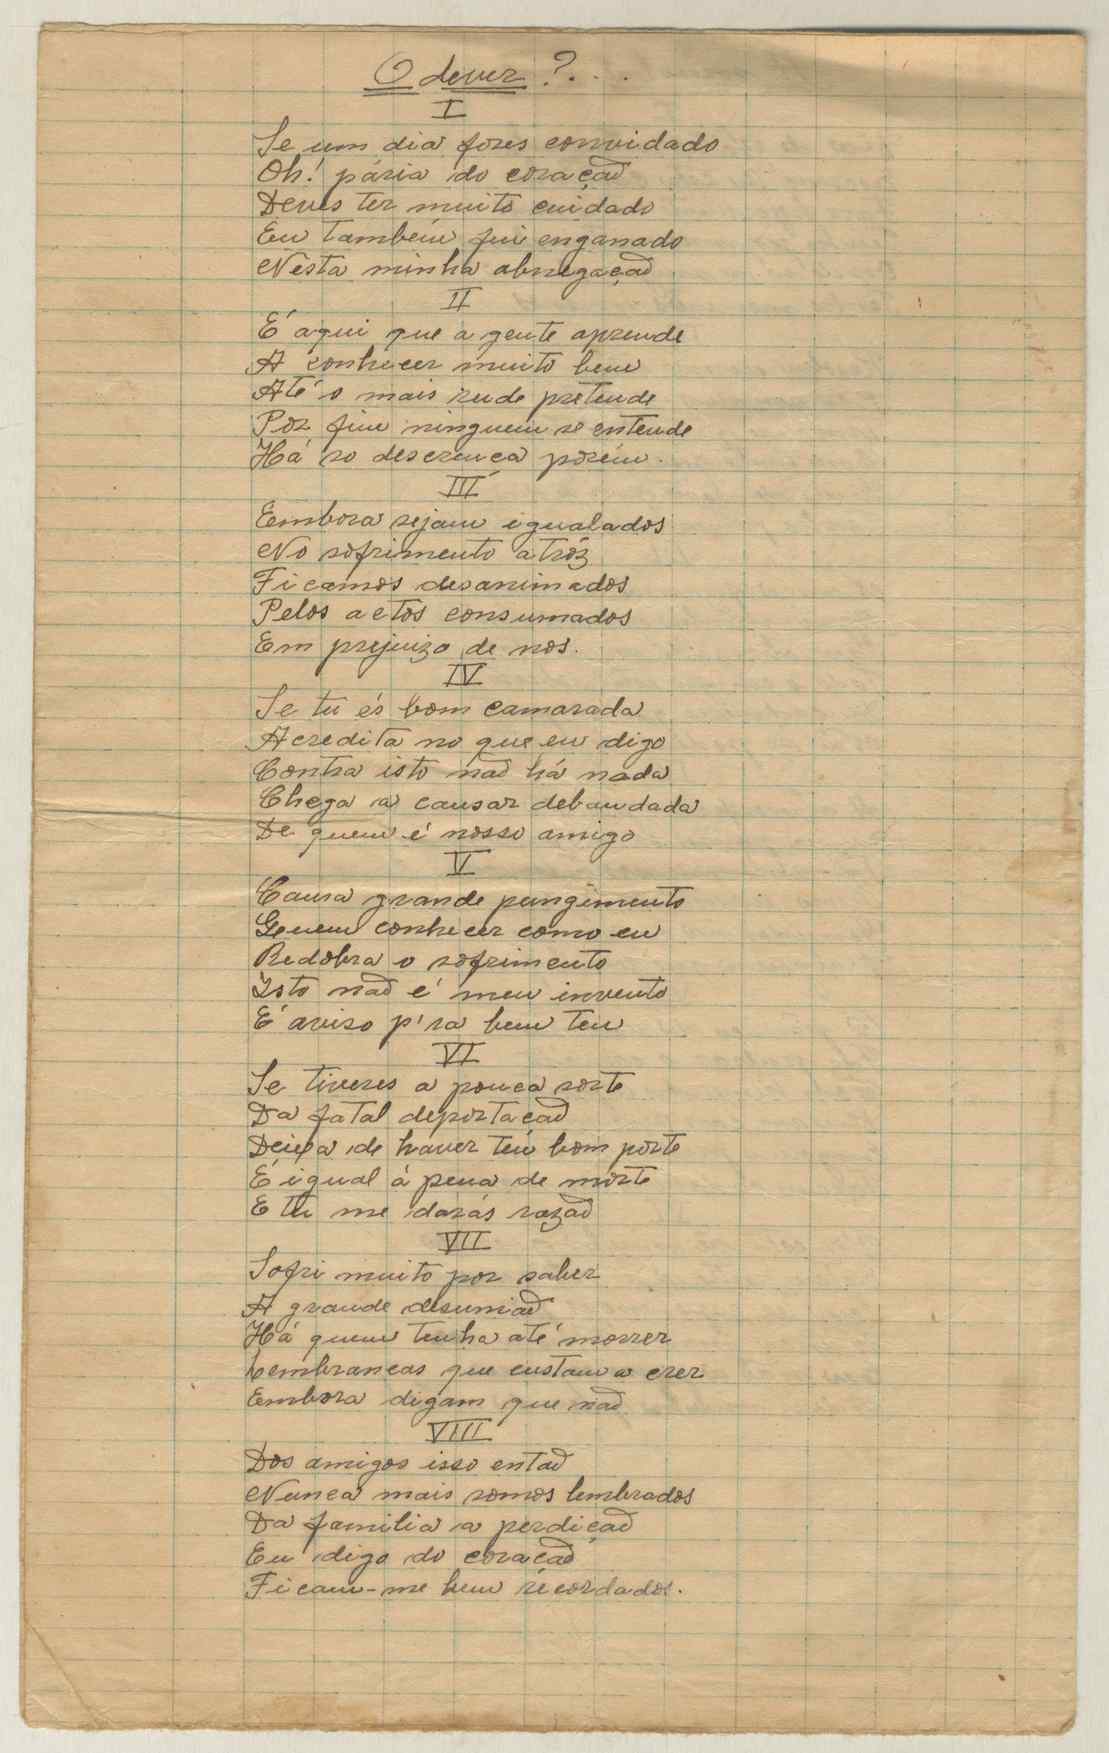 O dever?...
I
Se um dia fores convidado
Oh! pária do coração
Deves ter muito cuidado
Eu tambem fui enganado
Nesta minha abnegação
II
É aqui que a gente aprende
A conhecer muito bem
Até o mais rude pretende
Por fim ninguem se entende
Há so descrença porém.
III
Embora sejam igualados
No sofrimento atróz
Ficamos desanimados
Pelos actos consumados
Em prejuizo de nos.
IV
Se tu és bom camarada
Acredita no que eu digo
Contra isto não há nada
Chega a causar debandada
De quem é nosso amigo
V
Causa grande pungimento
Quem conhecer como eu
Redobra o sofrimento
Isto não é meu invento
É aviso p'ra bem teu
VI
Se tiveres a pouca sorte
Da fatal deportação
Deixa de haver teu bom porte
É igual á pena de morte
E tu me darás razão
VII
Sofri muito por saber
A grande desunião
Há quem tenha até morrer
Lembranças que custam a crer
Embora digam que não
VIII
Dos amigos isso então
Nunca mais somos lembrados
Da familia a perdição
Eu digo do coração
Ficam-me bem récordados.